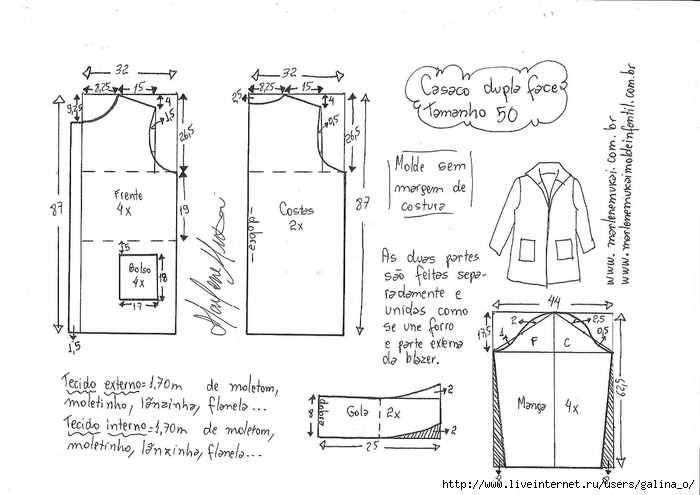 Casaco dupla face
Tamanho 50
www.marlenemukai.com.br
www.marlenemukaimoldeinfantil.com.br
Molde sem
margem de
costura
32
8,25
15
4
9,25
1,5
26,5
87
Frente
4x
19
5
Bolso
4x
18
17
1,5
32
8,25
15
2,5
4
0,5
26,5
87
Costas
2x
-dobra-
Marlene Mukai
As duas partes
são feitas sepa-
radamente e
unidas como
se une forro
e parte externa
da blazer.
44
17,5
1
2
2,5
0,5
F
C
62,5
Manga
4x
8
8
Tecido externo=1,70m de moletom,
moletinho, lãnzinha, flanela...
Tecido interno=1,70m de moletom,
moletinho, lãnxinha, flanela...
8
dobra
Gola
2x
2
2
25
http://www.liveinternet.ru/users/galina_o/